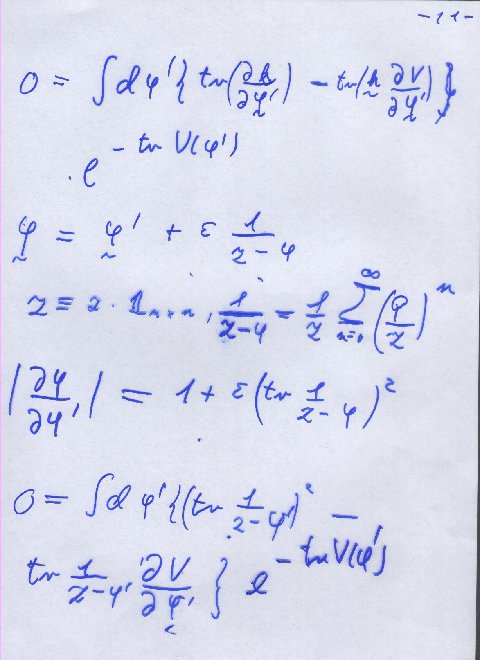 - 11 -
0 = ∫ d φ' { tr (∂h/∂φ') - tr (h ∂V/∂φ') }
· e^{- tr V(φ')}
φ = φ' + ε 1/(z - φ)
z ≡ z · 1_{n×n} , 1/(z-φ) = 1/z ∑_{n=0}^{∞} (φ/z)^n
|∂φ/∂φ'| = 1 + ε (tr 1/(z - φ))^2
0 = ∫ d φ' { (tr 1/(z-φ'))^2 -
tr 1/(z-φ') ∂V/∂φ' } e^{- tr V(φ')}